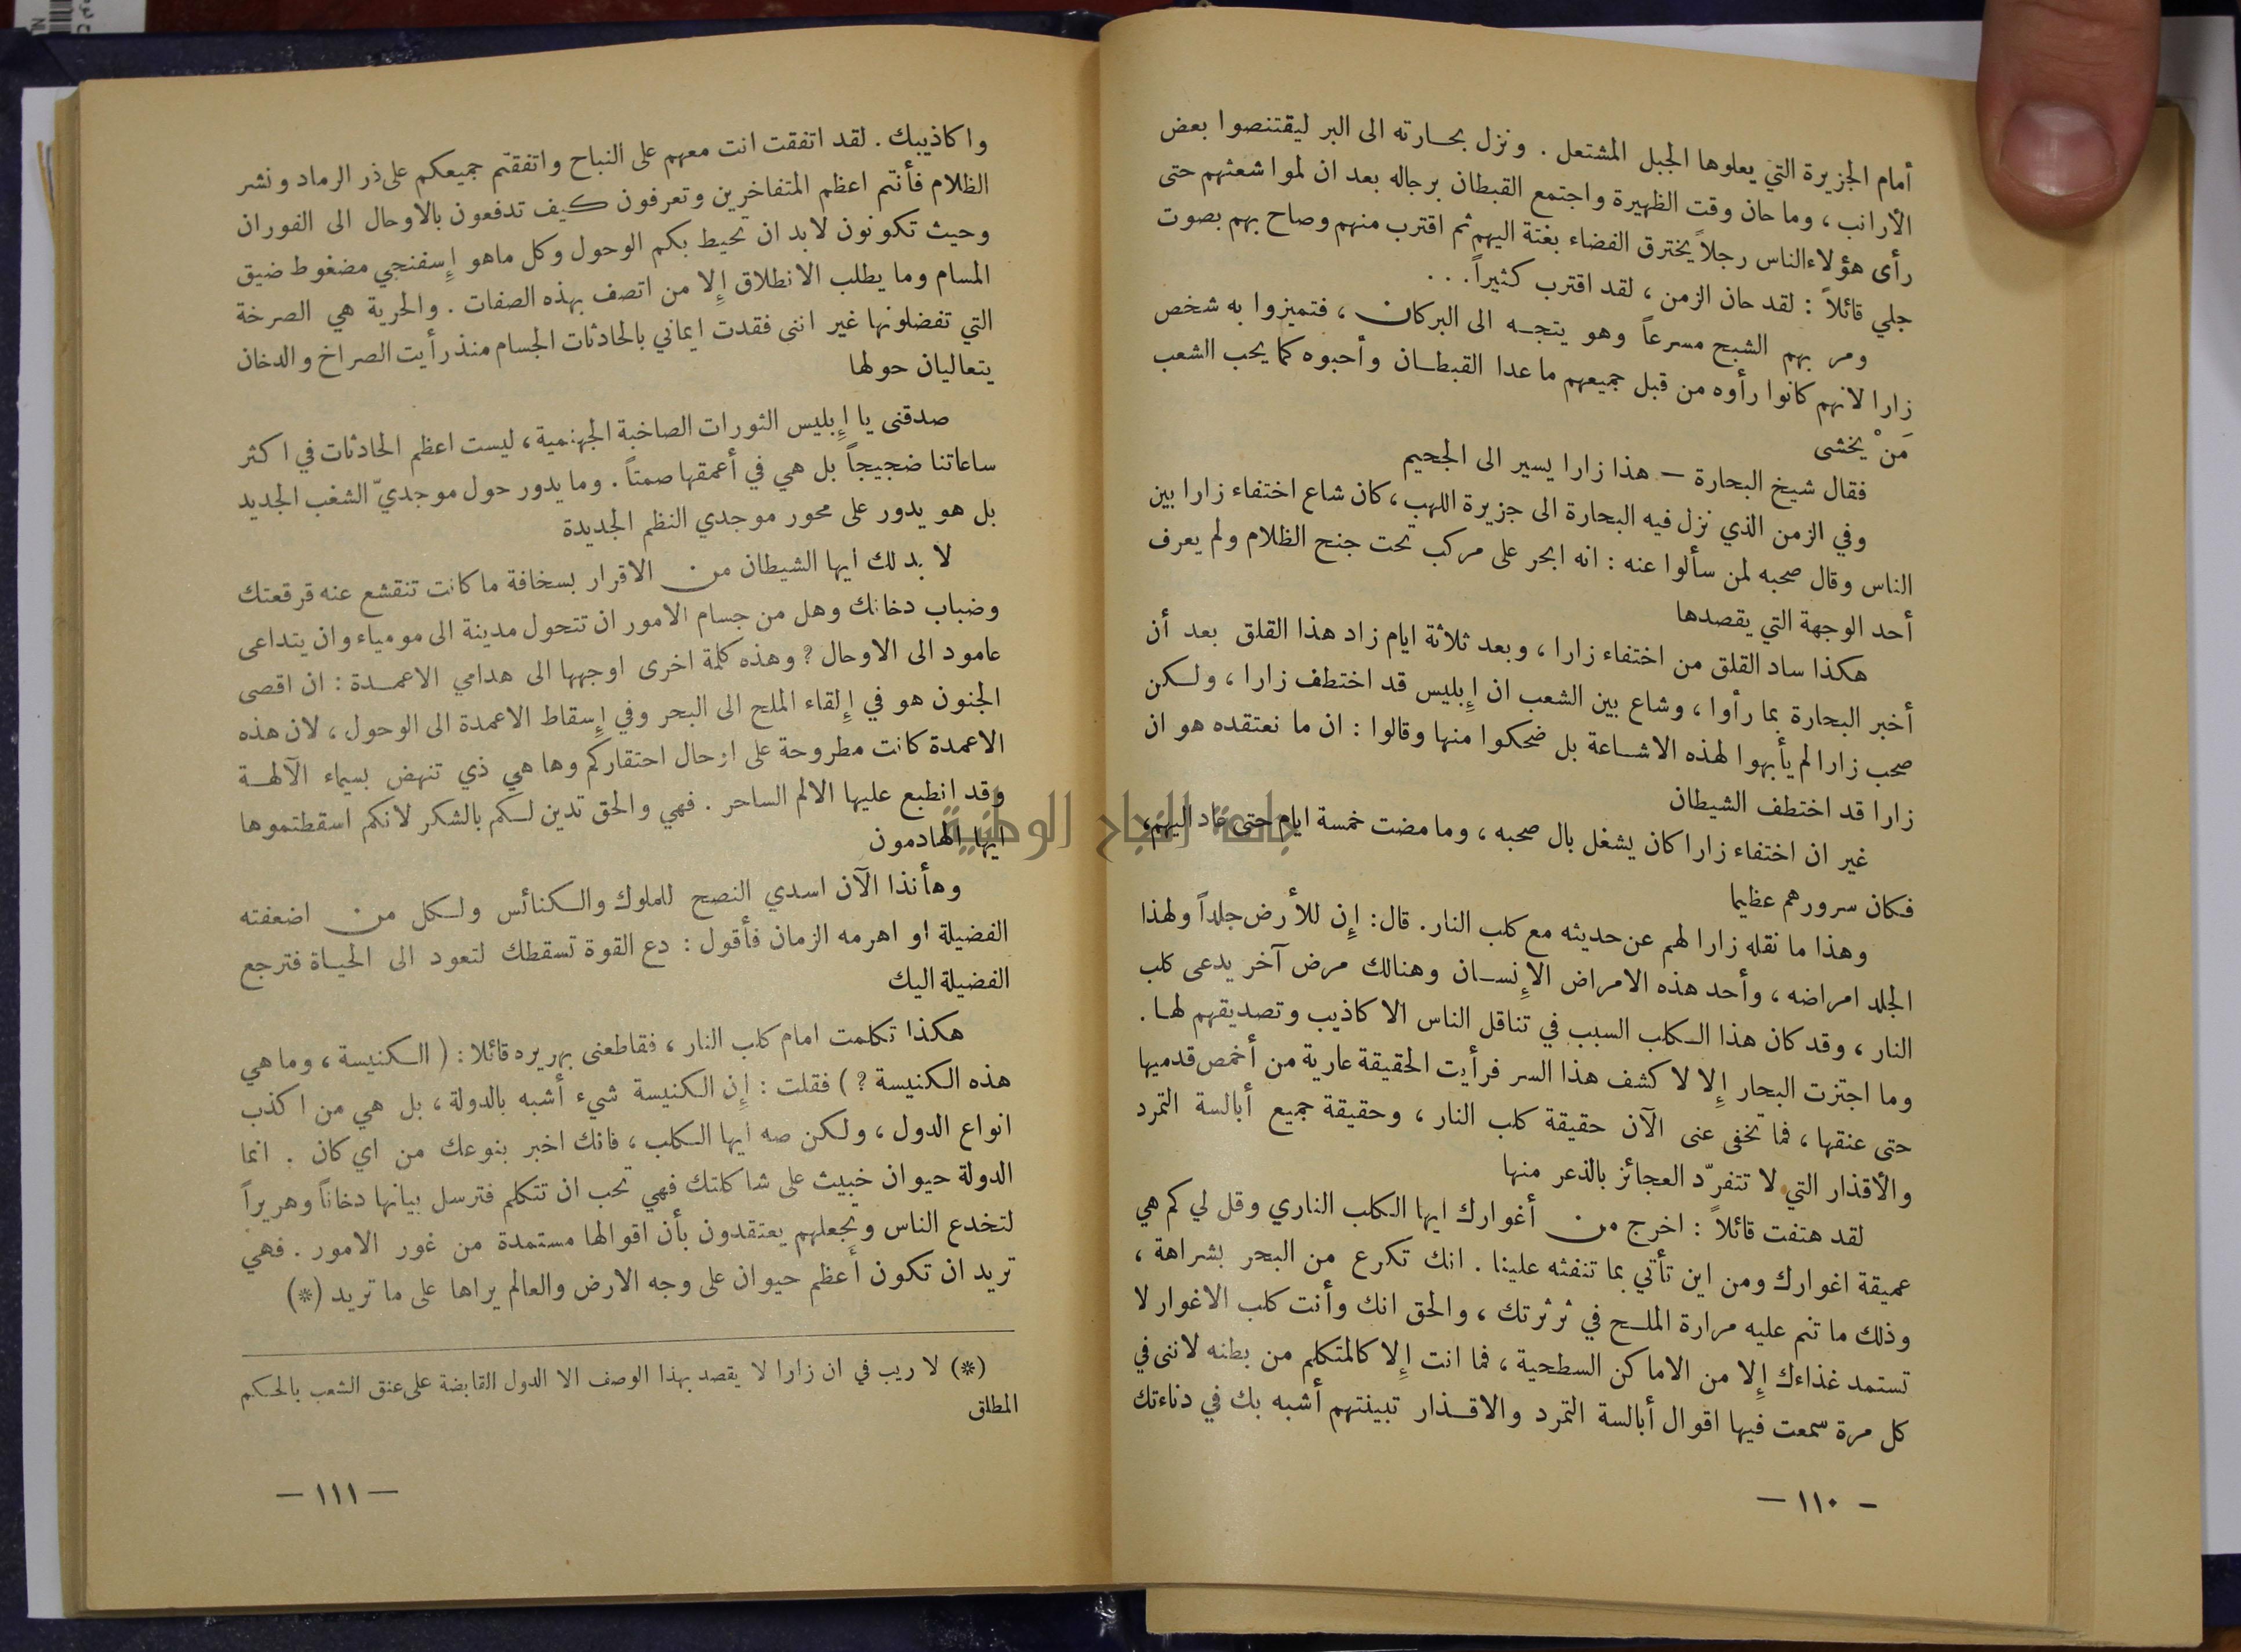 أمام الجزيرة التي يعلوها الجبل المشتعل . ونزل بحارته الى البر ليقتنصوا بعض
الأرانب ، وما حان وقت الظهيرة واجتمع القبطان برجاله بعد ان لموا شعثهم حتى
رأى هؤلاء الناس رجلاً يخترق الفضاء بغتة اليهم ثم اقترب منهم وصاح بهم بصوت
جلي قائلاً : لقد حان الزمن ، لقد اقترب كثيراً . . .
ومر بهم الشبح مسرعاً وهو يتجه الى البركان ، فتميزوا به شخص
زارا لانهم كانوا رأوه من قبل جميعهم ما عدا القبطان وأحبوه كما يحب الشعب
مَنْ يخشى
فقال شيخ البحارة — هذا زارا يسير الى الجحيم
وفي الزمن الذي نزل فيه البحارة الى جزيرة اللهب ، كان شاع اختفاء زارا بين
الناس وقال صحبه لمن سألوا عنه : انه ابحر على مركب تحت جنح الظلام ولم يعرف
أحد الوجهة التي يقصدها
هكذا ساد القلق من اختفاء زارا ، وبعد ثلاثة ايام زاد هذا القلق بعد أن
أخبر البحارة بما رأوا ، وشاع بين الشعب ان إبليس قد اختطف زارا ، ولكن
صحب زارا لم يأبهوا لهذه الاشاعة بل ضحكوا منها وقالوا : ان ما نعتقده هو ان
زارا قد اختطف الشيطان
غير ان اختفاء زارا كان يشغل بال صحبه ، وما مضت خمسة ايام حتى عاد اليهم ،
فكان سرورهم عظيما
وهذا ما نقله زارا لهم عن حديثه مع كلب النار . قال : إن للأرض جلداً ولهذا
الجلد امراضه ، وأحد هذه الامراض الإنسان وهنالك مرض آخر يدعى كلب
النار ، وقد كان هذا الكلب السبب في تناقل الناس الاكاذيب وتصديقهم لها .
وما اجتزت البحار إلا لا كشف هذا السر فرأيت الحقيقة عارية من أخمص قدميها
حتى عنقها ، فما تخفى عنى الآن حقيقة كلب النار ، وحقيقة جميع أبالسة التمرد
والأقذار التي لا تتفرّد العجائز بالذعر منها
لقد هتفت قائلاً : اخرج من أغوارك ايها الكلب الناري وقل لي كم هي
عميقة اغوارك ومن اين تأتي بما تنفثه علينا . انك تكرع من البحر بشراهة ،
وذلك ما تنم عليه مرارة الملح في ثرثرتك ، والحق انك وأنت كلب الاغوار لا
تستمد غذاءك إلا من الاماكن السطحية ، فما انت إلا كالمتكلم من بطنه لاننى في
كل مرة سمعت فيها اقوال أبالسة التمرد والاقذار تبينتهم أشبه بك في دناءتك
— ١١٠ —
واكاذيبك . لقد اتفقت انت معهم على النباح واتفقتم جميعكم على ذر الرماد ونشر
الظلام فأنتم اعظم المتفاخرين وتعرفون كيف تدفعون بالاوحال الى الفوران
وحيث تكونون لابد ان تحيط بكم الوحول وكل ماهو إسفنجي مضغوط ضيق
المسام وما يطلب الانطلاق إلا من اتصف بهذه الصفات . والحرية هي الصرخة
التي تفضلونها غير اننى فقدت ايماني بالحادثات الجسام منذ رأيت الصراخ والدخان
يتعاليان حولها
صدقنى يا إبليس الثورات الصاخبة الجهنمية ، ليست اعظم الحادثات في اكثر
ساعاتنا ضجيجاً بل هي في أعمقها صمتاً . وما يدور حول موجديّ الشغب الجديد
بل هو يدور على محور موجدي النظم الجديدة
لا بد لك ايها الشيطان من الاقرار بسخافة ما كانت تنقشع عنه قرقعتك
وضباب دخانك وهل من جسام الامور ان تتحول مدينة الى مومياء وان يتداعى
عامود الى الاوحال ؟ وهذه كلمة اخرى اوجهها الى هدامي الاعمدة : ان اقصى
الجنون هو في إلقاء الملح الى البحر وفي إسقاط الاعمدة الى الوحول ، لان هذه
الاعمدة كانت مطروحة على ازحال احتقاركم وها هي ذي تنهض بسيماء الآلهة
وقد انطبع عليها الالم الساحر . فهي والحق تدين لكم بالشكر لانكم اسقطتموها
ايها الهادمون
وهأنذا الآن اسدي النصح للملوك والكنائس ولكل من اضعفته
الفضيلة او اهرمه الزمان فأقول : دع القوة تسقطك لتعود الى الحياة فترجع
الفضيلة اليك
هكذا تكلمت امام كلب النار ، فقاطعنى بهريره قائلا : ( الكنيسة ، وما هي
هذه الكنيسة ؟ ) فقلت : إن الكنيسة شيء أشبه بالدولة ، بل هي من اكذب
انواع الدول ، ولكن صه ايها الكلب ، فانك اخبر بنوعك من اي كان . انما
الدولة حيوان خبيث على شاكلتك فهي تحب ان تتكلم فترسل بيانها دخاناً وهريراً
لتخدع الناس وتجعلهم يعتقدون بأن اقوالها مستمدة من غور الامور . فهي
تريد ان تكون أعظم حيوان على وجه الارض والعالم يراها على ما تريد (*)
(*) لا ريب في ان زارا لا يقصد بهذا الوصف الا الدول القابضة على عنق الشعب بالحكم
المطلق
— ١١١ —
جامعة النجاح الوطنية